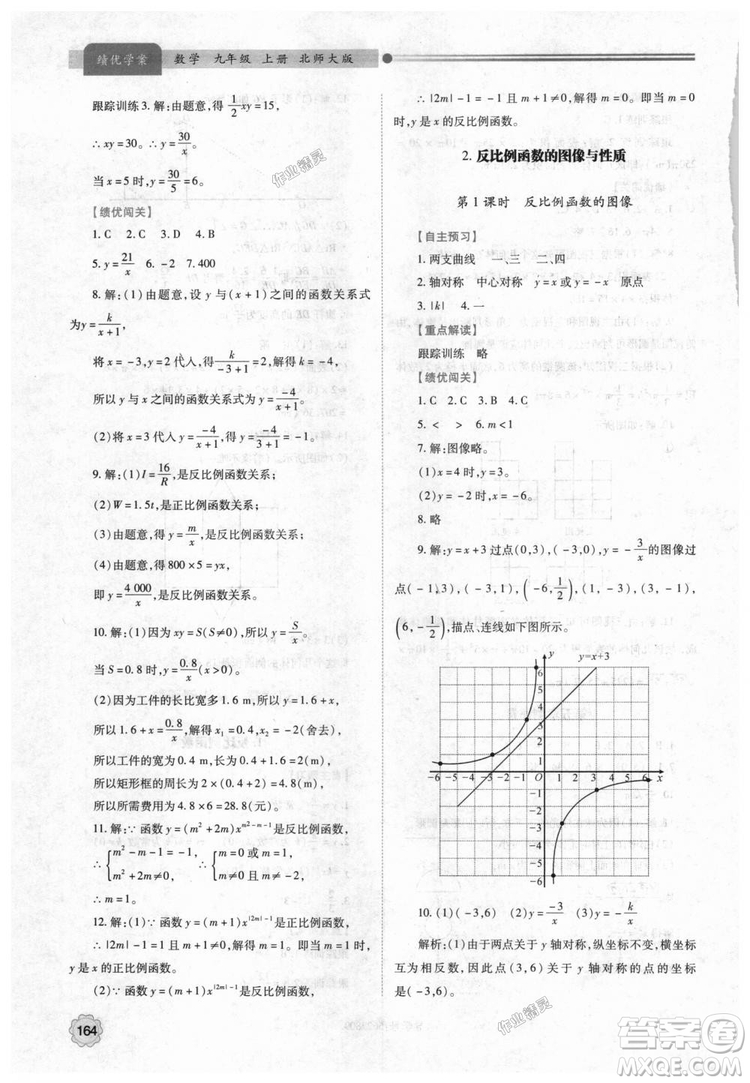 绩优学案 数学 九年级 上册 北师大版
跟踪训练3. 解:由题意,得 1/2 xy=15,
∴ xy=30. ∴ y=30/x.
当 x=5 时,y=30/5=6.
【绩优闯关】
1. C 2. C 3. D 4. B
5. y=21/x 6. -2 7. 400
8. 解:(1)由题意,设 y 与(x+1)之间的函数关系式
为y=k/(x+1),
将 x=-3,y=2 代入,得 k/(-3+1)=2,解得 k=-4,
所以 y 与 x 之间的函数关系式为 y=-4/(x+1).
(2)将 x=3 代入,得 y=-4/(x+1)=-4/(3+1)=-1.
9. 解:(1)I=16/R,是反比例函数关系;
(2)W=1.5t,是正比例函数关系;
(3)由题意,得 y=m/x,是反比例函数关系;
(4)由题意,得 800×5=yx,
即 y=4 000/x,是反比例函数关系.
10. 解:(1)因为 xy=S(S≠0),所以 y=S/x.
当 S=0.8 时,y=0.8/x(x>0).
(2)因为工件的长比宽多 1.6 m,所以 y=x+1.6,
所以 x+1.6=0.8/x,解得 x1=0.4,x2=-2(舍去),
所以工件的宽为 0.4 m,长为 2 m,
所以矩形框的周长为 2×(2+0.4)=4.8(m),
所以所需费用为 4.8×6=28.8(元).
11. 解:∵ 函数 y=(m²+2m)x^(m²-m-1)是反比例函数,
∴ {m²-m-1=-1, m²+2m≠0, ∴ {m=0 或 m=1, m≠0 且 m≠-2,
∴ m=1.
12. 解:(1)∵ 函数 y=(m+1)x^(|2m|-1)是正比例函数,
∴ |2m|-1=1 且 m+1≠0,解得 m=1. 即当 m=1 时,
y是 x 的正比例函数.
(2)∵ 函数 y=(m+1)x^(|2m|-1)是反比例函数,
164
∴ |2m|-1=-1 且 m+1≠0,解得 m=0. 即当 m=0
时,y 是 x 的反比例函数.
2. 反比例函数的图像与性质
第 1 课时 反比例函数的图像
【自主预习】
1. 两支曲线 一、三 二、四
2. 轴对称 中心对称 y=x 或 y=-x 原点
3. |k| 4. 一
【重点解读】
跟踪训练 略
【绩优闯关】
1. C 2. C 3. A 4. C
5. < > 6. m<1
7. 解:图像略.
(1)x=4 时,y=3.
(2)x=-2 时,y=-6.
8. 略
9. 解:y=x+3 过点(0,3),(-3,0),y=-3/x的图像过
点(-1,3),(-3,1),(-6,1/2),(1,-3),(3,-1),
(6,-1/2),描点、连线如下图所示.
y
y=x+3
6
5
4
3
2
1
-6 -5 -4 -3 -2 -1 O 1 2 3 4 5 6 x
-1
-2
-3
-4
-5
-6
10. (1)(-3,6) (2)y=-3/x (3)y=-k/x
解析:(1)由于两点关于 y 轴对称,纵坐标不变,横坐标
互为相反数,因此点(3,6)关于 y 轴对称的点的坐标
是(-3,6).
作业精灵
作业精灵
作业精灵
答案圈
MXQE.COM